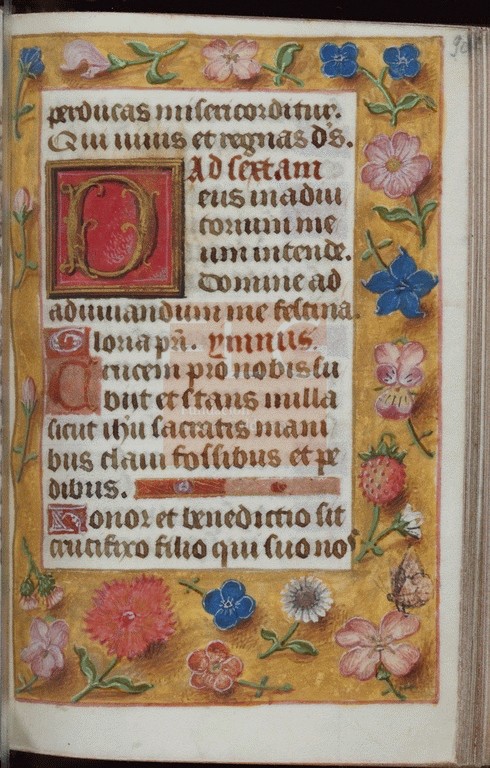 perducas misericorditur.
Qui uiuis et regnas ds.
Ad sextam
eus in adiu
torium me
um intende.
Domine ad
adiuuandum me festina.
Gloria pri. ymnus.
Crucem pro nobis su
biit et stans in illa
sicut ihu sacratis mani
bus claui fossibus et pe
dibus.
Honor et benedictio sit
crucifixo filio qui suo nos